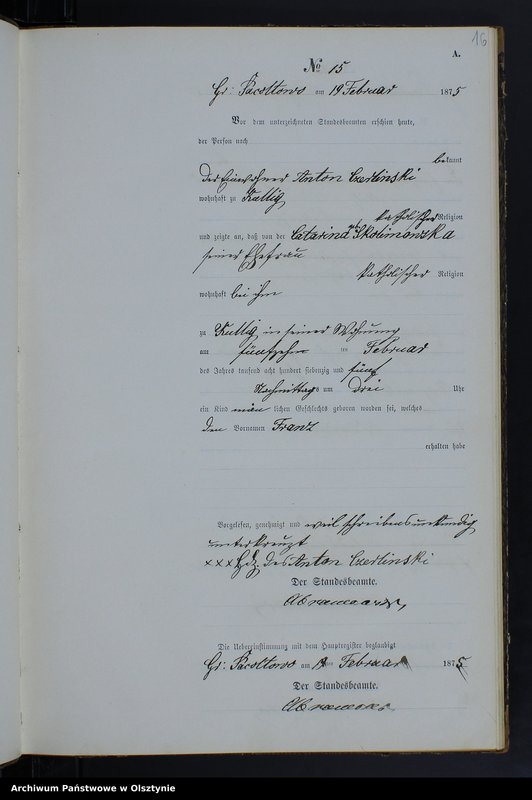 16
A.
No 15
Gr: Pacoltowo am 19 Februar 1875
Vor dem unterzeichneten Standesbeamten erschien heute,
der Person nach
bekannt
der Einwohner Anton Czerlinski
wohnhaft zu Kullig
katholischer Religion
und zeigte an, daß von der Catarina geb Skolimowzka
seiner Ehefrau
katholischer Religion
wohnhaft bei ihm
zu Kullig in seiner Wohnung
am fünfzehn ten Februar
des Jahres tausend acht hundert siebenzig und fünf
Nachmittags um drei Uhr
ein Kind män lichen Geschlechts geboren worden sei, welches
den Vornamen Franz
erhalten habe
Vorgelesen, genehmigt und weil schreibensunkundig
unterkreuzt
××× Hdz des Anton Czerlinski
Der Standesbeamte.
Die Uebereinstimmung mit dem Hauptregister beglaubigt
Gr: Pacoltowo am 19ten Februar 1875
Der Standesbeamte.
Archiwum Państwowe w Olsztynie